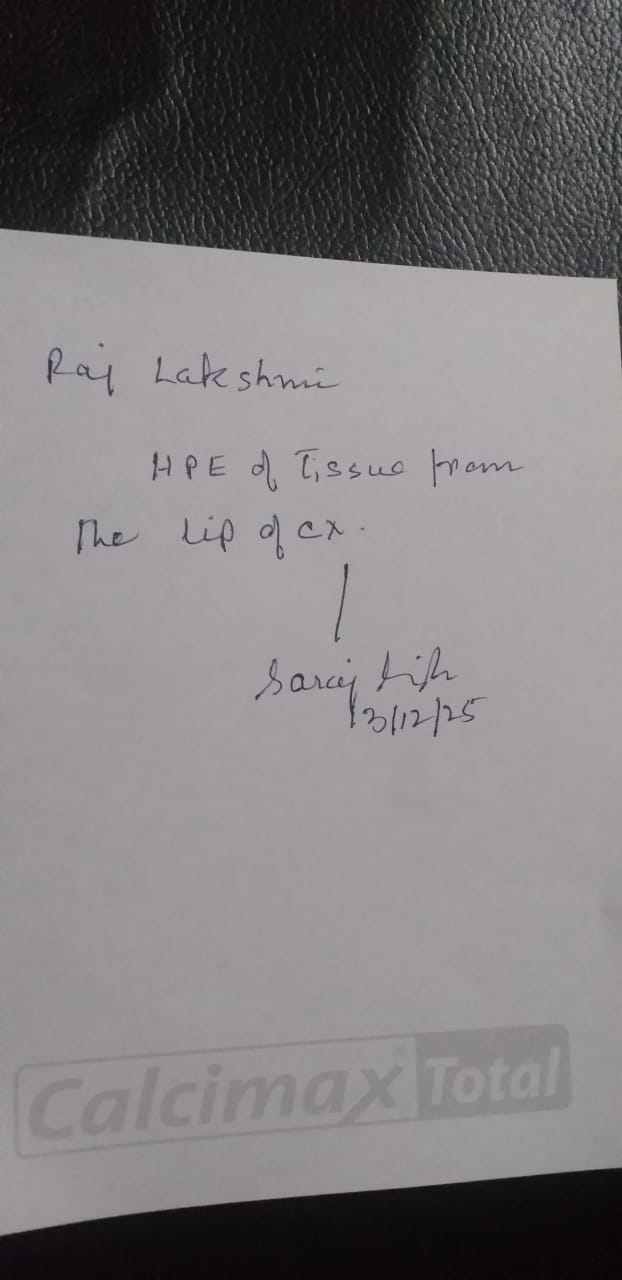 Raj Lakshmi
HPE of Tissue from
The lip of cx.
Saroj
13/12/25
Calcimax Total